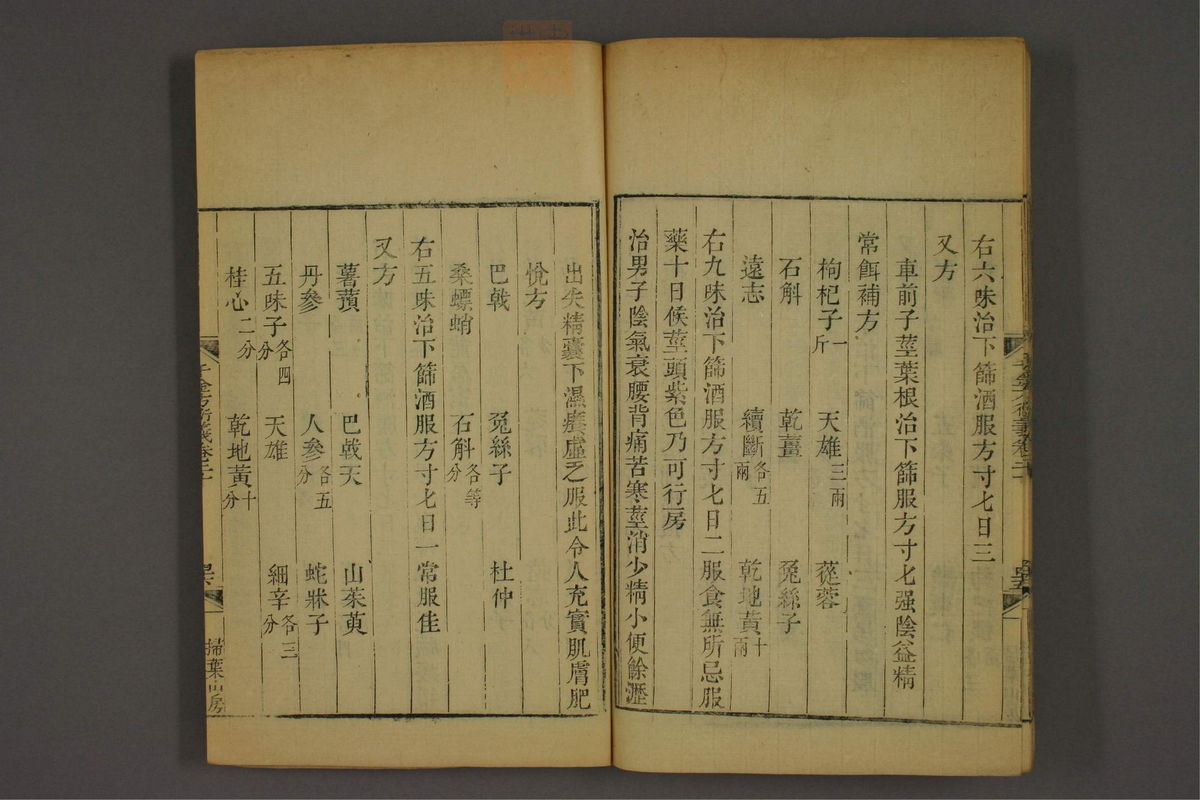 右六味治下篩酒服方寸匕日三
又方
車前子莖葉根治下篩服方寸匕强陰益精
常餌補方
枸杞子一斤 天雄三兩 蓯蓉
石斛 乾薑 兔絲子
遠志 續斷各五兩 乾地黃十兩
右九味治下篩酒服方寸匕日二服食無所忌服
藥十日候莖頭紫色乃可行房
治男子陰氣衰腰背痛苦寒莖消少精小便餘瀝
出失精囊下濕癢虛乏服此令人充實肌膚肥
悅方
巴戟 兔絲子 杜仲
桑螵蛸 石斛各等分
右五味治下篩酒服方寸匕日一常服佳
又方
薯蕷 巴戟天 山茱萸
丹參 人參各五分 蛇牀子
五味子各四分 天雄 細辛各三分
桂心二分 乾地黃十分
千金方衍義卷二十
掃葉山房